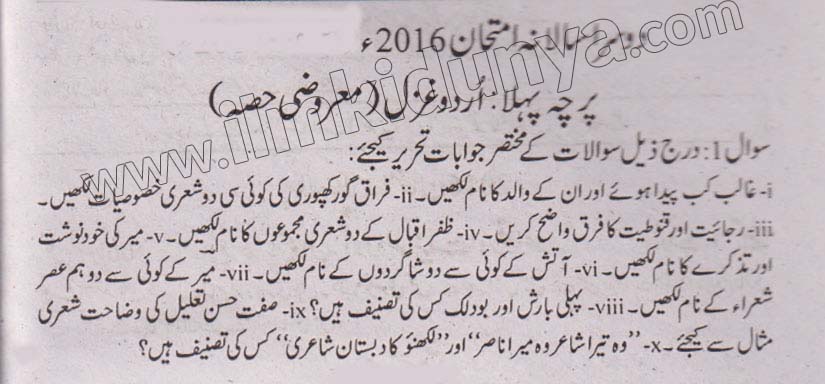 دوسرا سالانہ امتحان 2016ء
پرچہ پہلا: اُردو غزل (معروضی حصہ)
سوال 1: درج ذیل سوالات کے مختصر جوابات تحریر کیجئے:
i- غالب کب پیدا ہوئے اور ان کے والد کا نام لکھیں۔ ii- فراق گورکھپوری کی کوئی سی دو شعری خصوصیات لکھیں۔
iii- رجائیت اور قنوطیت کا فرق واضح کریں۔ iv- ظفر اقبال کے دو شعری مجموعوں کا نام لکھیں۔ v- میر کی خودنوشت
اور تذکرے کا نام لکھیں۔ vi- آتش کے کوئی سے دو شاگردوں کے نام لکھیں۔ vii- میر کے کوئی سے دو ہم عصر
شعراء کے نام لکھیں۔ viii- پہلی بارش اور بودلک کس کی تصنیف ہیں؟ ix- صفت حسن تعلیل کی وضاحت شعری
مثال سے کیجئے۔ x- ”وہ تیرا شاعر وہ میرا ناصر“ اور ”لکھنؤ کا دبستان شاعری“ کس کی تصنیف ہیں؟
www.ilmkidunya.com